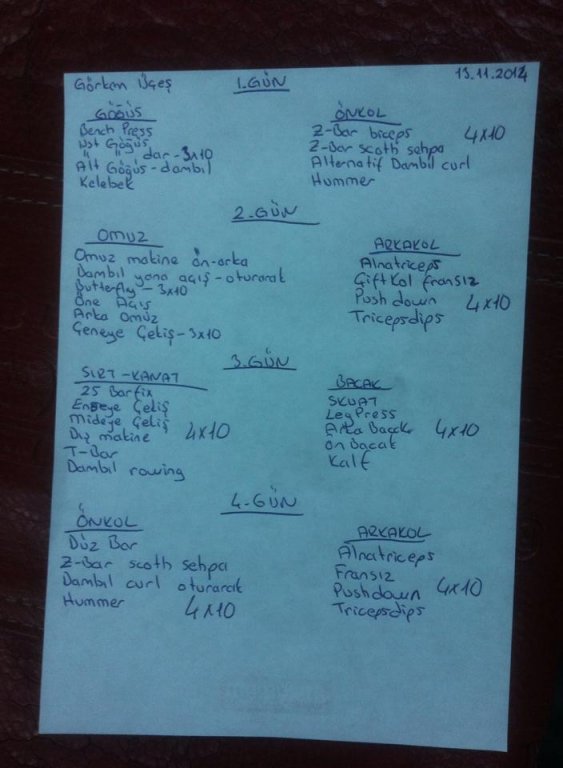 Görkem Üçeş 1.GÜN 13.11.2014
GÖĞÜS
Bench Press
Üst Göğüs
" " dar-3x10
Alt Göğüs-dambıl
Kelebek
ÖNKOL
Z-Bar biceps 4x10
Z-Bar scoth sehpa
Alternatif Dambıl curl
Hummer
2.GÜN
OMUZ
Omuz makine ön-arka
Dambıl yana açış-oturarak
Butterfly-3x10
Öne Açış
Arka Omuz
Çeneye Çekiş-3x10
ARKAKOL
Alnatriceps
Çiftkol fransız
Push down 4x10
Tricepsdips
3.GÜN
SIRT-KANAT
25 Barfix
Enseye Çekiş
Mideye Çekiş
Düz makine 4x10
T-Bar
Dambıl rowing
BACAK
SKUAT
Leg Press
Arka Bacak 4x10
Ön Bacak
Kalf
4.GÜN
ÖNKOL
Düz Bar
Z-Bar scoth sehpa
Dambıl curl oturarak
Hummer 4x10
ARKAKOL
Alnatriceps
Fransız
Pushdown 4x10
Tricepsdips